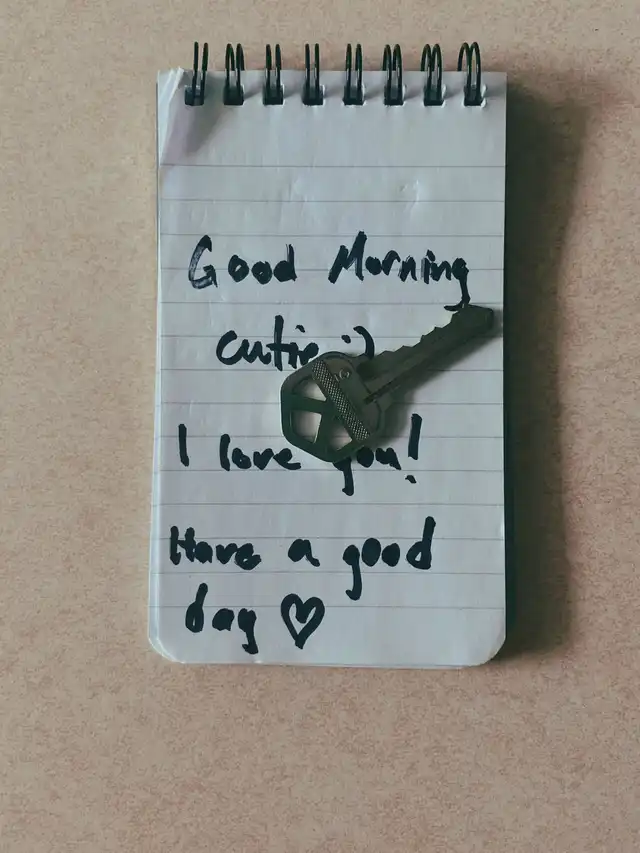 Good Morning
cutie :)
I love you!
Have a good
day ♡